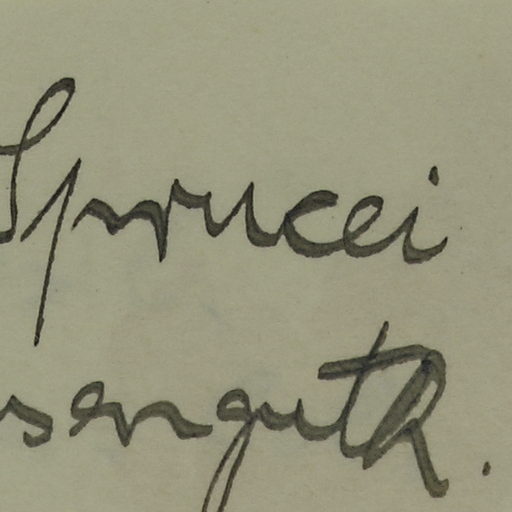 Sprucei
senguth.